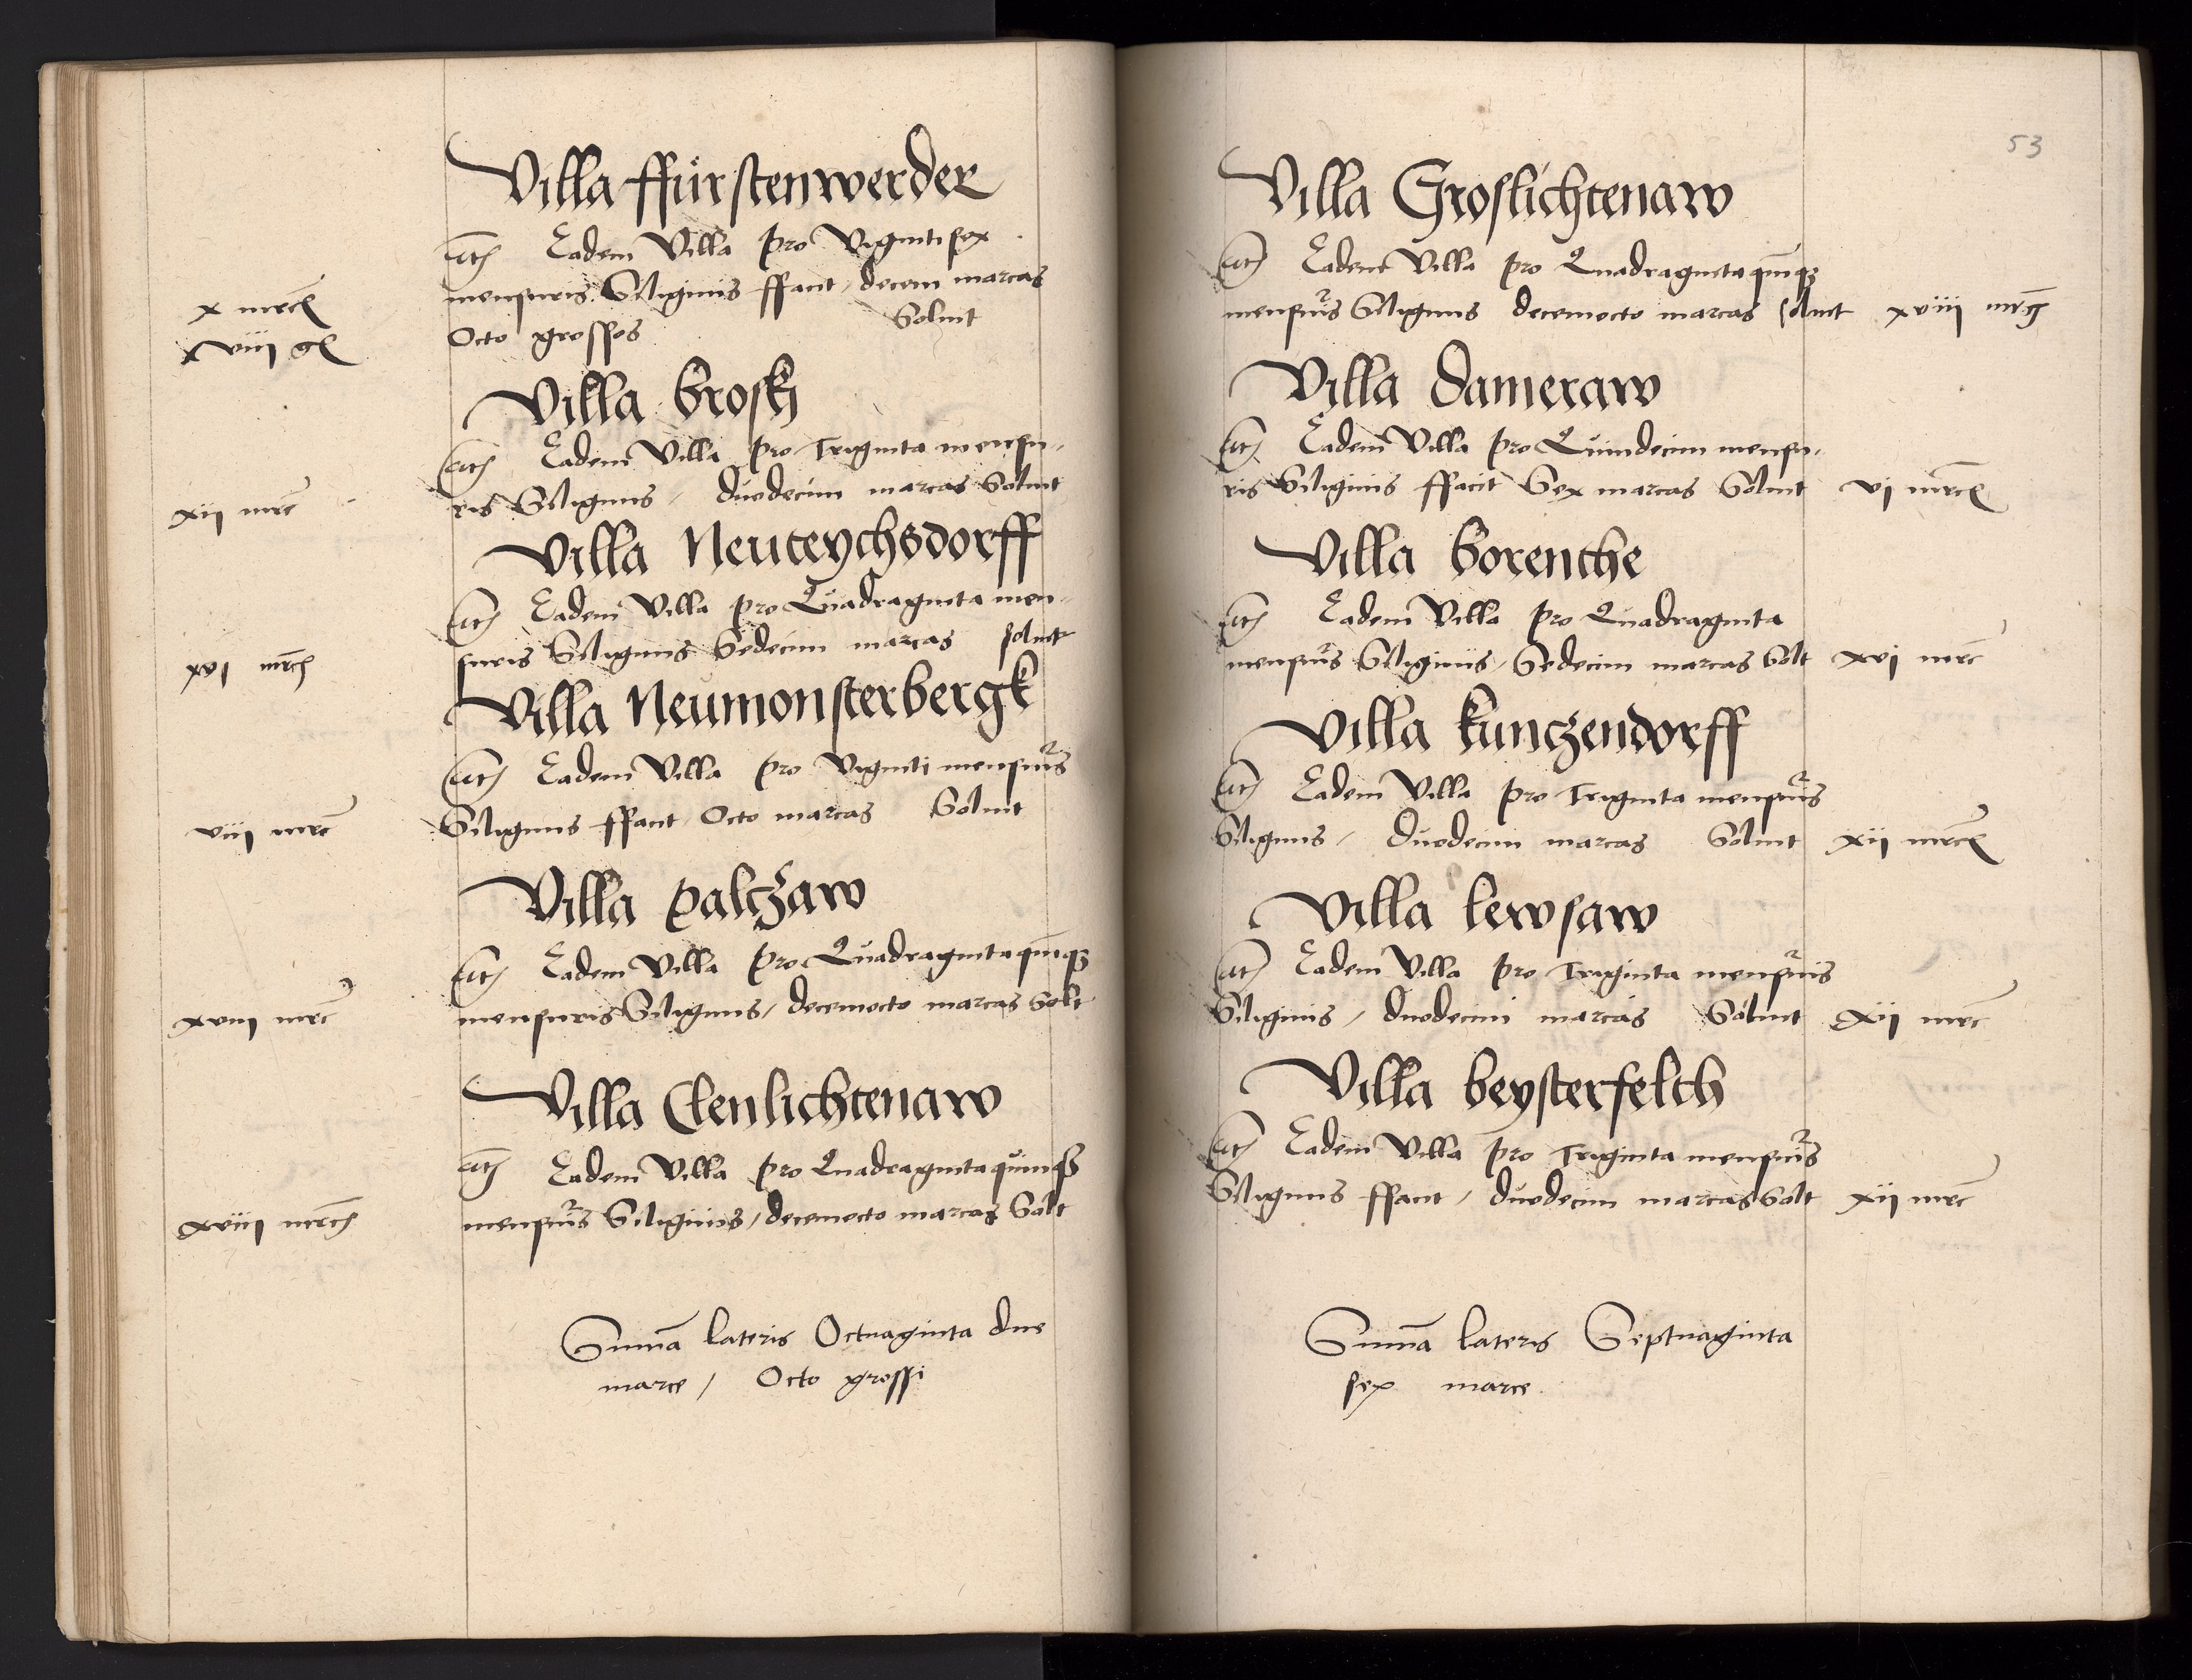 Villa ffürstenwerder
Itē Eadem Villa pro Viginti sex
mensuris Siliginis ffaciūt / decem marcas
x mrc̄
Octo grossos Soluit
viij gℓ
Villa Brosk
Itē Eadem Villa pro Triginta mensu-
ris Siliginis / duodecim marcas Soluit
xij mrc̄
Villa Neuteychsdorff
Itē Eadem Villa pro Quadraginta men-
suris Siliginis Sedecim marcas soluit
xvj mrc̄
Villa Neumonsterbergk
Itē Eadem Villa pro Viginti mensur̄s
Siliginis ffaciūt Octo marcas Soluit
viij mrc̄
Villa palczaw
Itē Eadem Villa pro Quadragintaquīqꝫ
mensuris Siliginis / decemocto marcas Solt
xviij mrc̄
Villa Clenlichtenaw
Itē Eadem Villa pro Quadragintaquinqꝫ
mensur̄s Siliginis / decemocto marcas Solt
xviij mrc̄
Sum̄a lateris Octuaginta due
marce / Octo grossi
53
Villa Groslichtenaw
Itē Eadem Villa pro Quadragintaquīqꝫ
mensur̄s Siliginis decemocto marcas soluit xviij mrc̄
Villa dameraw
Itē Eadem Villa pro Quindecim mensu-
ris Siliginis ffacit Sex marcas Soluit vj mrc̄
Villa Borenthe
Itē Eadem Villa pro Quadraginta
mensur̄s Siliginis / Sedecim marcas Solt xvj mrc̄
Villa kunczendorff
Itē Eadem Villa pro Triginta mensur̄s
Siliginis / duodecim marcas Soluit xij mrc̄
Villa lewsaw
Itē Eadem Villa pro Triginta mensuris
Siliginis / duodecim marcas Soluit xij mrc̄
Villa beysterfelth
Itē Eadem Villa pro Triginta mensur̄s
Siliginis ffaciūt / duodecim marcas Solt xij mrc̄
Sum̄a lateris Septuaginta
sex marce